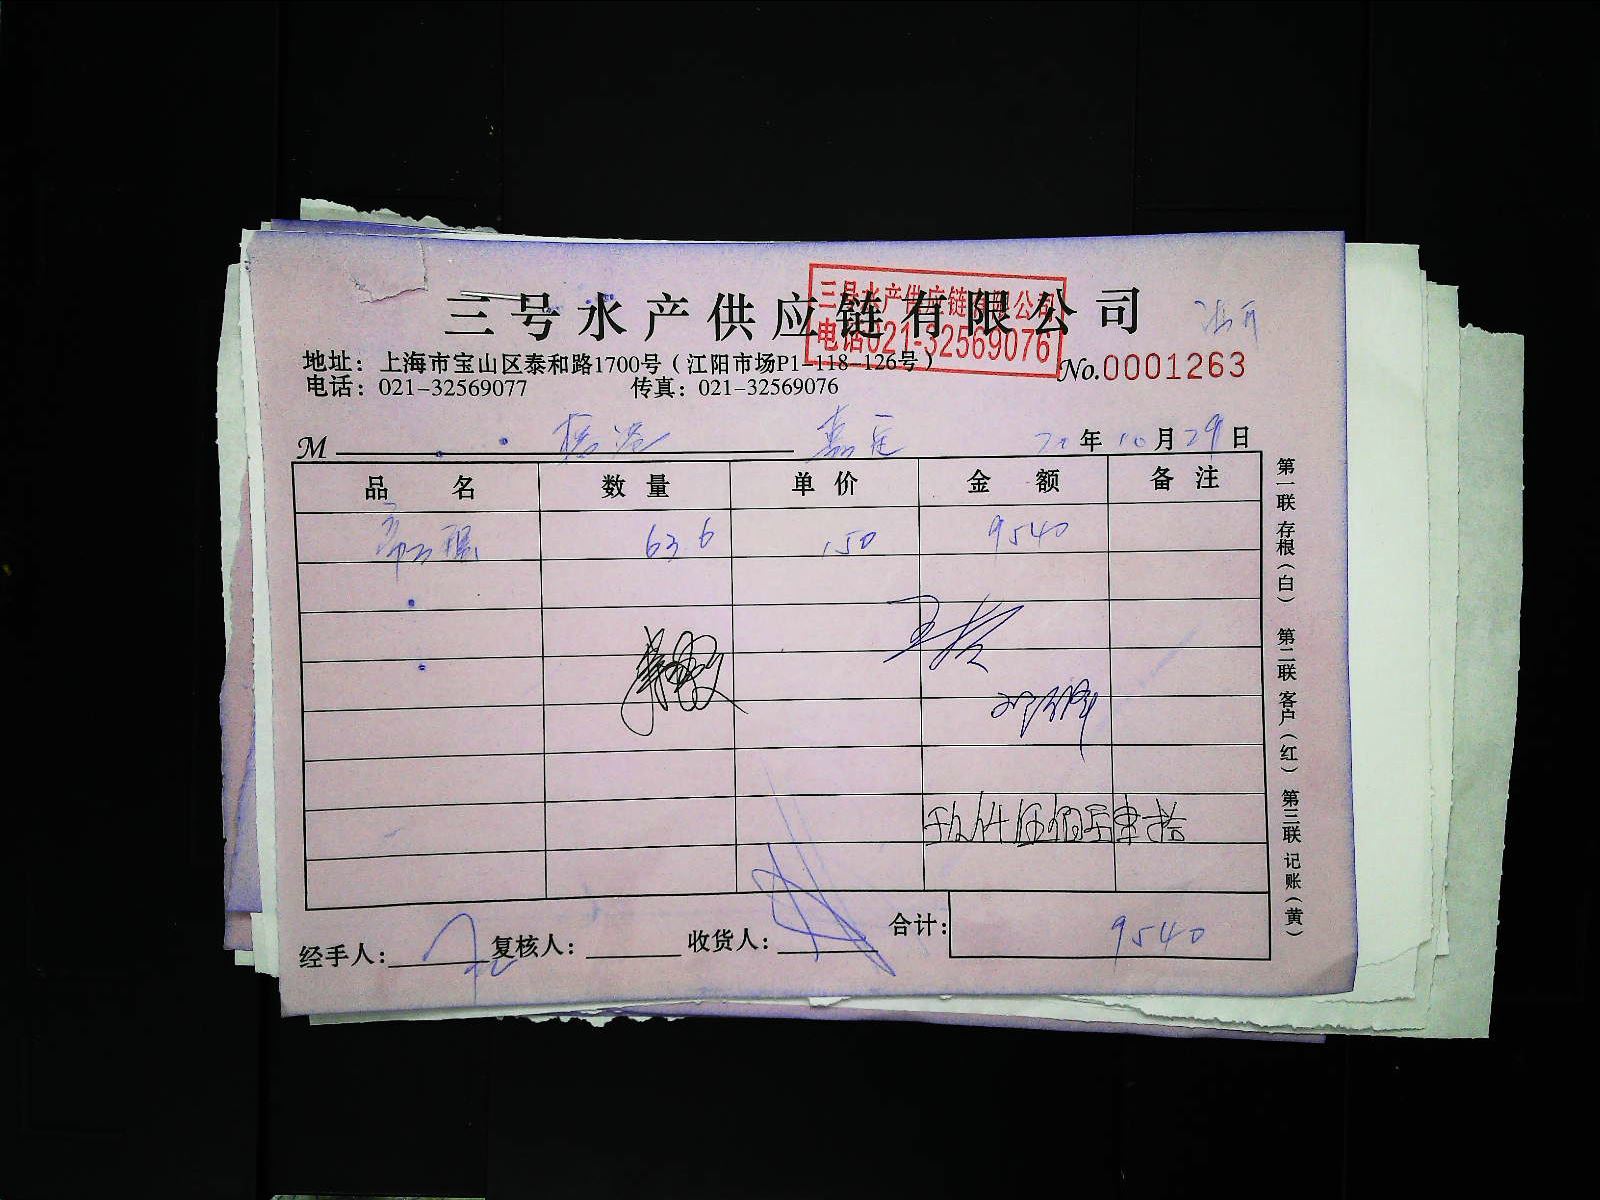 三号水产供应链有限公司
三号水产供应链有限公司
电话021-32569076
地址：上海市宝山区泰和路1700号（江阳市场P1-118-126号）
No.0001263
电话：021-32569077 传真：021-32569076
M 嘉定 20年10月29日
品名 数量 单价 金额 备注
63.6 150 9540
玖仟伍佰肆拾
合计：9540
经手人： 复核人： 收货人：
第一联 存根（白） 第二联 客户（红） 第三联 记账（黄）